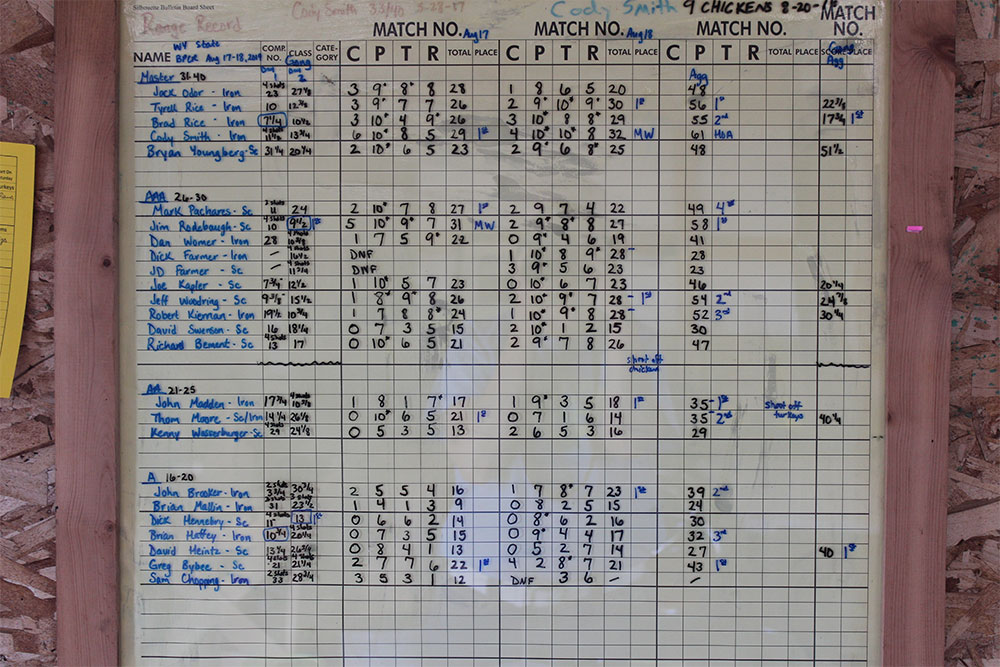 Silhouette Bulletin Board Sheet
Range Record Cody Smith 33/40 Cody Smith 9 CHICKENS
MATCH NO. Aug 17 MATCH NO. Aug 18 MATCH NO. MATCH NO.
NAME WY State BPCR Aug 17-18, COMP. NO. CLASS CATEGORY C P T R TOTAL PLACE C P T R TOTAL PLACE C P T R TOTAL PLACE SCORE PLACE
Master 31-40 Agg
Jack Odor - Iron 23 27 1/8 3 9* 8* 8 28 1 8 6 5 20 48
Tyrell Rice - Iron 10 3 9* 7 7 26 2 9* 10* 9* 30 1st 56 1st
Brad Rice - Iron 7 1/4 10 1/2 3 10* 4 9* 26 3 10* 8 8* 29 55 2nd 17 3/4 1st
Cody Smith - Iron 11 1/2 13 3/4 6 10* 8 5 29 1st 4 10* 10* 8 32 MW 61 HOA
Bryan Youngberg - Sc 31 1/4 20 1/4 2 10* 6 5 23 2 9* 6 8* 25 48 51 1/2
AAA 26-30
Mark Pachares - Sc 11 24 2 10* 7 8 27 1st 2 9 7 4 22 49 4th
Jim Rodebaugh - Sc 10 9 1/2 1st 5 10* 9* 7 31 MW 2 9* 8* 8 27 58 1st
Dan Womer - Iron 28 1 7 5 9* 22 0 9* 4 6 19 41
Dick Farmer - Iron - 16 1/2 DNF 1 10* 8 9* 28 - 28
JD Farmer - Sc - 11 3/4 DNF 3 9* 5 6 23 23
Joe Kapler - Sc 7 3/4 12 1/2 1 10* 5 7 23 0 10* 6 7 23 46 20 1/4
Jeff Woodring - Sc 9 3/8 15 1/2 1 8* 9* 8 26 2 10* 9* 7 28 - 1st 54 2nd 24 7/8
Robert Kiernan - Iron 19 1/2 10 3/4 1 7 8 8* 24 1 10* 9* 8 28 - 52 3rd 30 1/4
David Swenson - Sc 16 18 1/4 0 7 3 5 15 2 10* 1 2 15 30
Richard Bement - Sc 13 17 0 10* 6 5 21 2 9* 7 8 26 47
shoot off chickens
AA 21-25
John Madden - Iron 17 3/4 10 3/8 1 8 1 7* 17 1 9* 3 5 18 1st 35 - 1st shoot off turkeys
Thom Moore - Sc/Iron 14 1/4 26 1/8 0 10* 6 5 21 1st 0 7 1 6 14 35 2nd 40 1/4
Kenny Wasserburger - Sc 29 24 1/8 0 5 3 5 13 2 6 5 3 16 29
A 16-20
John Brooker - Iron 33 1/4 30 3/4 2 5 5 4 16 1 7 8* 7 23 1st 39 2nd
Brian Mallin - Iron 31 23 1/2 1 4 1 3 9 0 8 2 5 15 24
Dick Hennebry - Sc 11 13 1st 0 6 6 2 14 0 8* 6 2 16 30
Brian Haffey - Iron 10 3/4 26 1/4 0 7 3 5 15 0 9* 4 4 17 32 3rd
David Heintz - Sc 13 1/4 26 3/4 0 8 4 1 13 0 5 2 7 14 27 40 1st
Greg Bybee - Sc 21 21 1/4 2 7 7 6 22 1st 4 2 8* 7 21 43 1st
Sam Chopping - Iron 33 28 3/4 3 5 3 1 12 DNF 3 6 - -